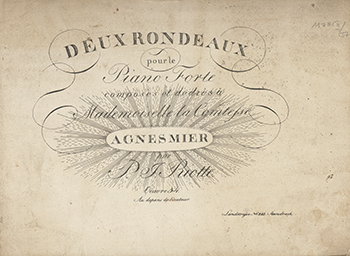 DEUX RONDEAUX
pour le
Piano Forte
composés et dediés à
Mademoiselle la Comtesse
AGNES MIER
par
P. J. Riotte
Oeuvre